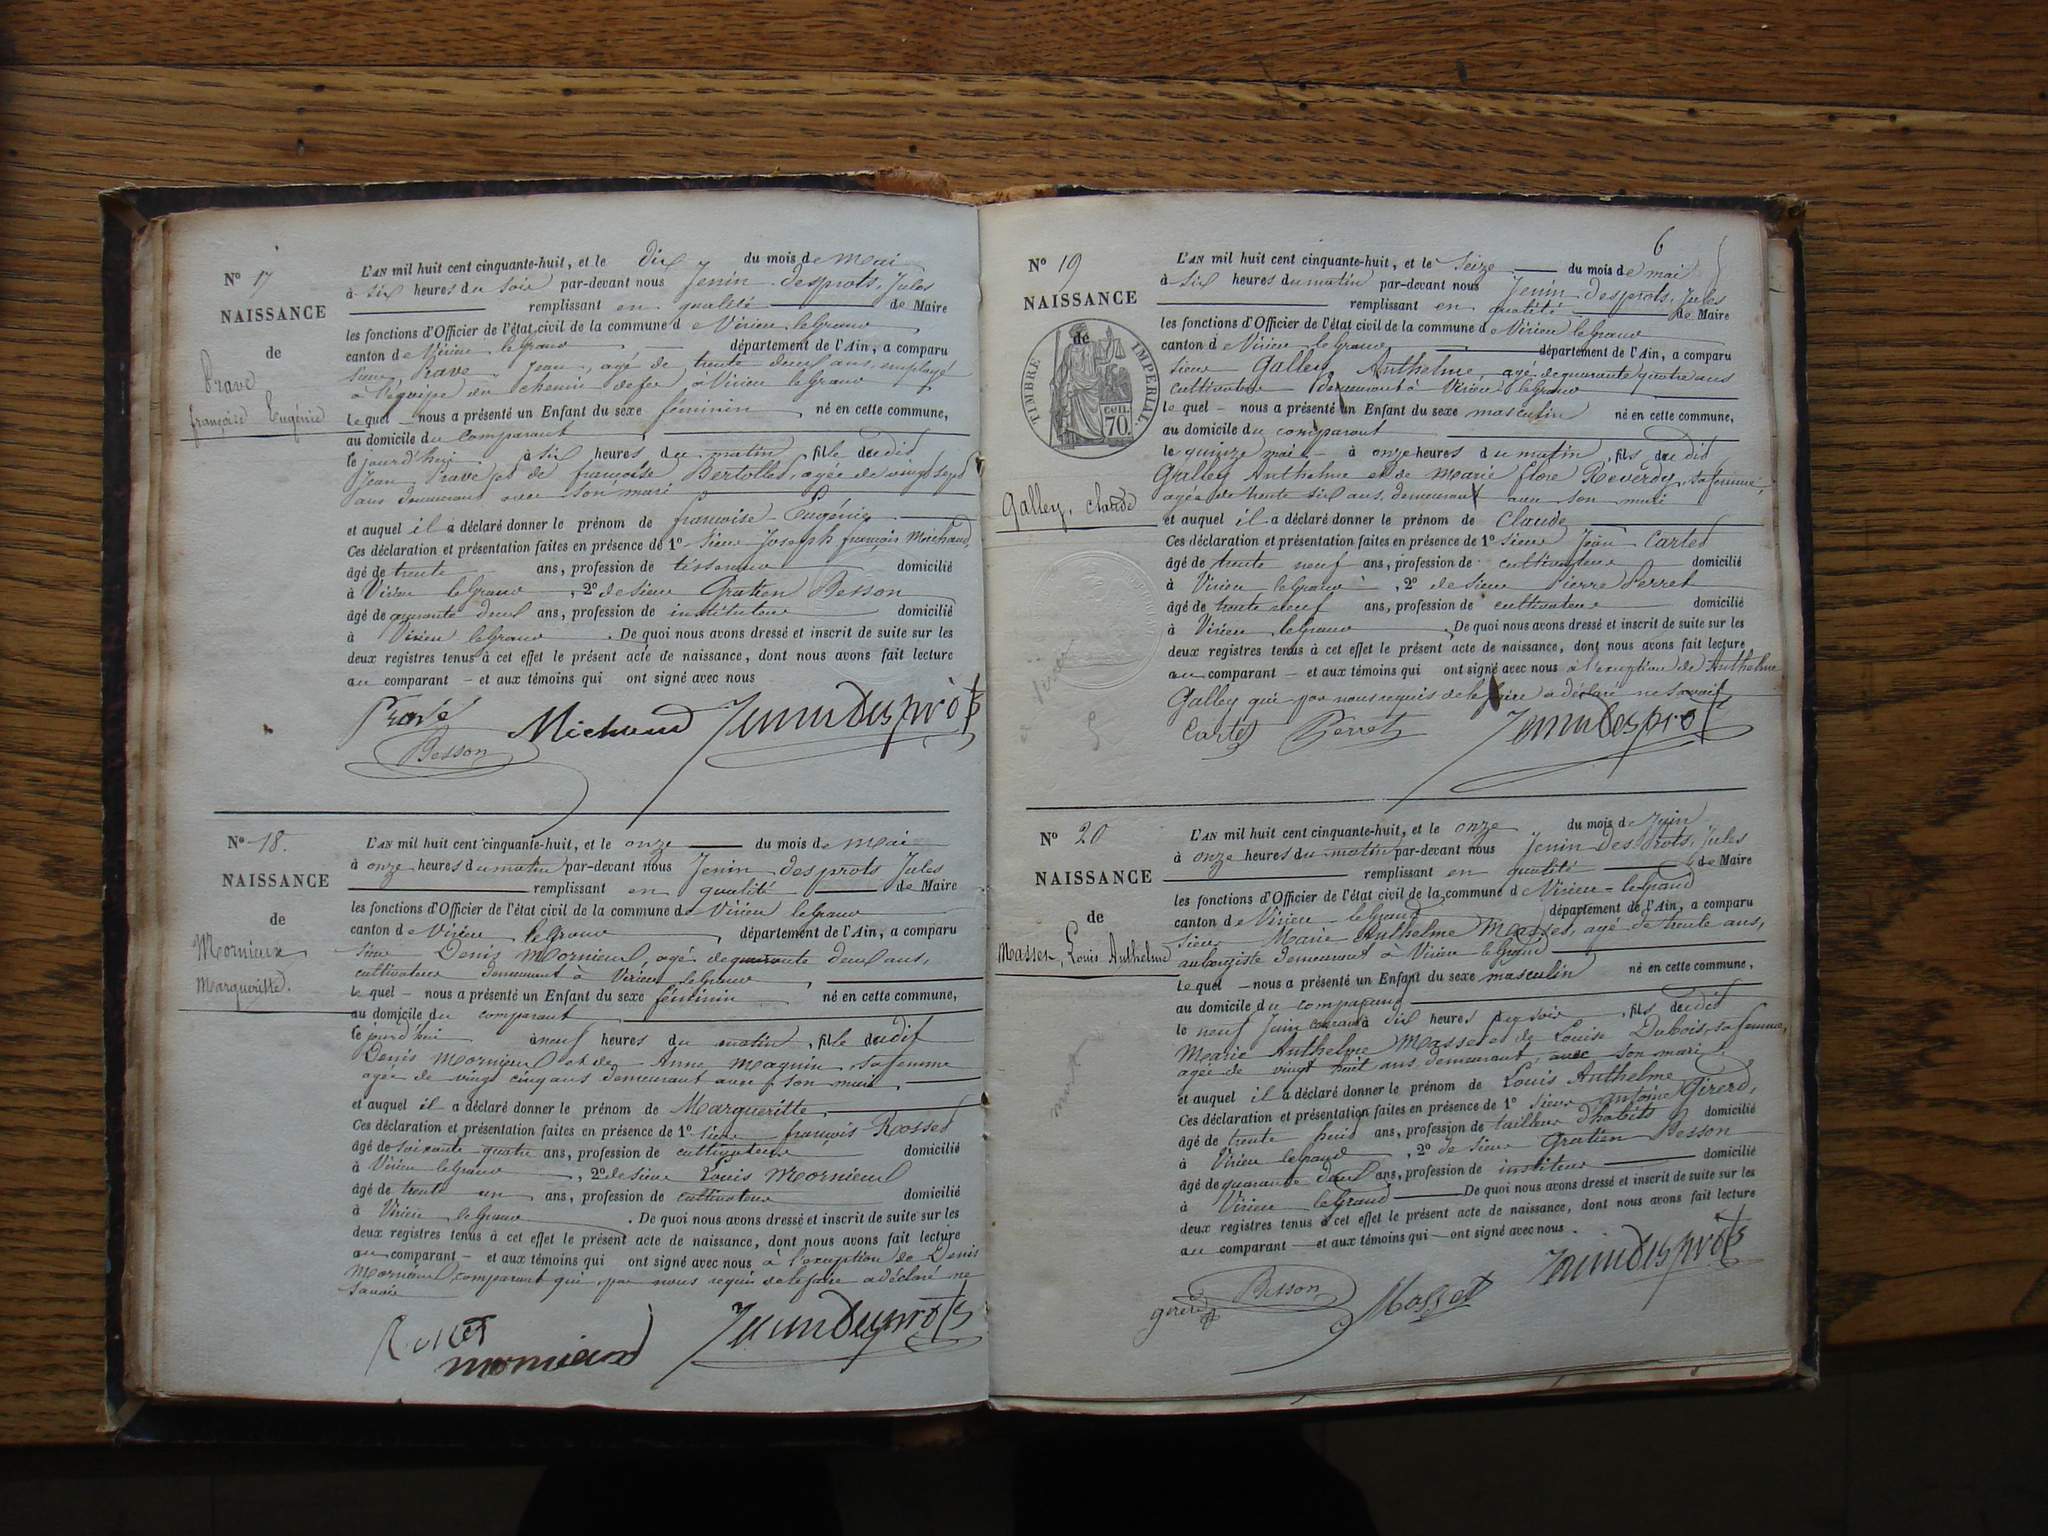 N° 17
NAISSANCE
de
Pravé
françoise Eugénie
L'AN mil huit cent cinquante-huit, et le dix du mois de Mai
à six heures du soir par-devant nous Jenin desprots, Jules
remplissant en qualité de Maire
les fonctions d'Officier de l'état civil de la commune de Virieu le Grand
canton de Virieu le Grand département de l'Ain, a comparu
sieur Pravé Jean, agé de trente deux ans, employé
à l'équipe du chemin de fer, à Virieu le Grand
le quel nous a présenté un Enfant du sexe féminin né en cette commune,
au domicile du comparant
le jourd'hui à six heures du matin, fille dudit
Jean Pravé et de françoise Bertollet, agée de vingt sept
ans demeurant avec son mari
et auquel il a déclaré donner le prénom de françoise-Eugénie
Ces déclaration et présentation faites en présence de 1° sieur Joseph françois Michaud,
âgé de trente ans, profession de tisserand domicilié
à Virieu le Grand, 2° de sieur Gratien Besson
âgé de quarante deux ans, profession de instituteur domicilié
à Virieu le Grand. De quoi nous avons dressé et inscrit de suite sur les
deux registres tenus à cet effet le présent acte de naissance, dont nous avons fait lecture
au comparant - et aux témoins qui ont signé avec nous
Pravé Michaud Jenin Desprots
Besson
N° 18.
NAISSANCE
de
Mornieux
Margueritte.
L'AN mil huit cent cinquante-huit, et le onze du mois de Mai
à onze heures du matin par-devant nous Jenin desprots Jules
remplissant en qualité de Maire
les fonctions d'Officier de l'état civil de la commune de Virieu le Grand
canton de Virieu le Grand, département de l'Ain, a comparu
sieur Denis Mornieux, agé de quarante deux ans,
cultivateur demeurant à Virieu le Grand
le quel - nous a présenté un Enfant du sexe féminin né en cette commune,
au domicile du comparant
le jourd'hui à neuf heures du matin, fille dudit
Denis Mornieux et de Anne Maquin, sa femme
agée de vingt cinq ans demeurant avec son mari
et auquel il a déclaré donner le prénom de Margueritte
Ces déclaration et présentation faites en présence de 1° sieur françois Rosset
âgé de soixante quatre ans, profession de cultivateur domicilié
à Virieu le Grand, 2° de sieur Louis Mornieux
âgé de trente un ans, profession de cultivateur domicilié
à Virieu le Grand. De quoi nous avons dressé et inscrit de suite sur les
deux registres tenus à cet effet le présent acte de naissance, dont nous avons fait lecture
au comparant - et aux témoins qui ont signé avec nous à l'exception de Denis
Mornieux, comparant qui par nous requis de le faire a déclaré ne
savoir
Rosset Jenin Desprots
mornieux
6
N° 19
NAISSANCE
de
TIMBRE IMPÉRIAL
CEN.
70
Galley, Claude
L'AN mil huit cent cinquante-huit, et le seize du mois de mai
à six heures du matin par-devant nous Jenin desprots, Jules
remplissant en qualité de Maire
les fonctions d'Officier de l'état civil de la commune de Virieu le Grand
canton de Virieu le Grand département de l'Ain, a comparu
sieur Galley Anthelme, agé de quarante quatre ans
cultivateur demeurant à Virieu le Grand
le quel - nous a présenté un Enfant du sexe masculin né en cette commune,
au domicile du comparant
le quinze mai - à onze heures du matin, fils dudit
Galley Anthelme et de Marie flore Reverdy, sa femme,
agée de trente six ans, demeurant avec son mari
et auquel il a déclaré donner le prénom de Claude
Ces déclaration et présentation faites en présence de 1° sieur Jean Cartet
âgé de trente neuf ans, profession de cultivateur domicilié
à Virieu le Grand, 2° de sieur Pierre Perret
âgé de trente neuf ans, profession de cultivateur domicilié
à Virieu le Grand. De quoi nous avons dressé et inscrit de suite sur les
deux registres tenus à cet effet le présent acte de naissance, dont nous avons fait lecture
au comparant - et aux témoins qui ont signé avec nous à l'exception de Anthelme
Galley qui par nous requis de le faire a déclaré ne savoir
Cartet Perret Jenin Desprots
N° 20
NAISSANCE
de
Masset, Louis Anthelme
L'AN mil huit cent cinquante-huit, et le onze du mois de Juin
à onze heures du matin par-devant nous Jenin Desprots, Jules
remplissant en qualité de Maire
les fonctions d'Officier de l'état civil de la commune de Virieu-le Grand
canton de Virieu-le Grand département de l'Ain, a comparu
sieur Marie Anthelme Masset, agé de trente ans,
aubergiste demeurant à Virieu le Grand
le quel - nous a présenté un Enfant du sexe masculin né en cette commune,
au domicile du comparant
le neuf Juin courant à dix heures du soir, fils dudit
Marie Anthelme Masset et de Louise Dubois, sa femme,
agée de vingt huit ans, demeurant avec son mari
et auquel il a déclaré donner le prénom de Louis Anthelme
Ces déclaration et présentation faites en présence de 1° sieur Antoine Girerd,
âgé de trente huit ans, profession de tailleur d'habits domicilié
à Virieu le Grand, 2° de sieur Gratien Besson
âgé de quarante deux ans, profession de instituteur domicilié
à Virieu le Grand De quoi nous avons dressé et inscrit de suite sur les
deux registres tenus à cet effet le présent acte de naissance, dont nous avons fait lecture
au comparant - et aux témoins qui - ont signé avec nous.
girerd Besson Masset Jenin Desprots